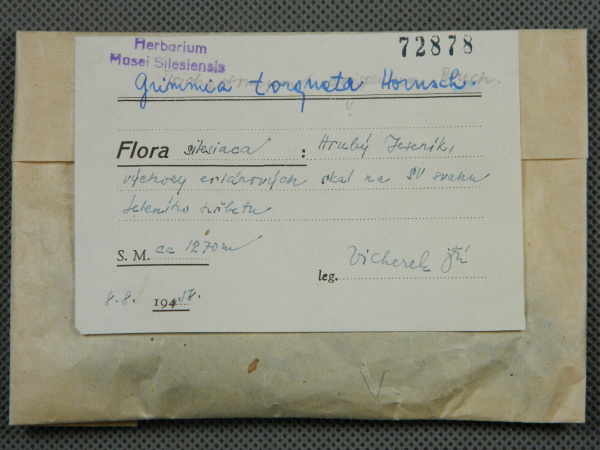 Herbarium
Musei Silesiensis
72878
Grimmia torquata Hornsch.
Flora silesiaca : Hrubý Jeseník,
výchozy erlánových skal na SV svahu
Jeleního hřbetu
S. M. ca 1270m
leg. Vicherek Jiří
8. 8. 1958.